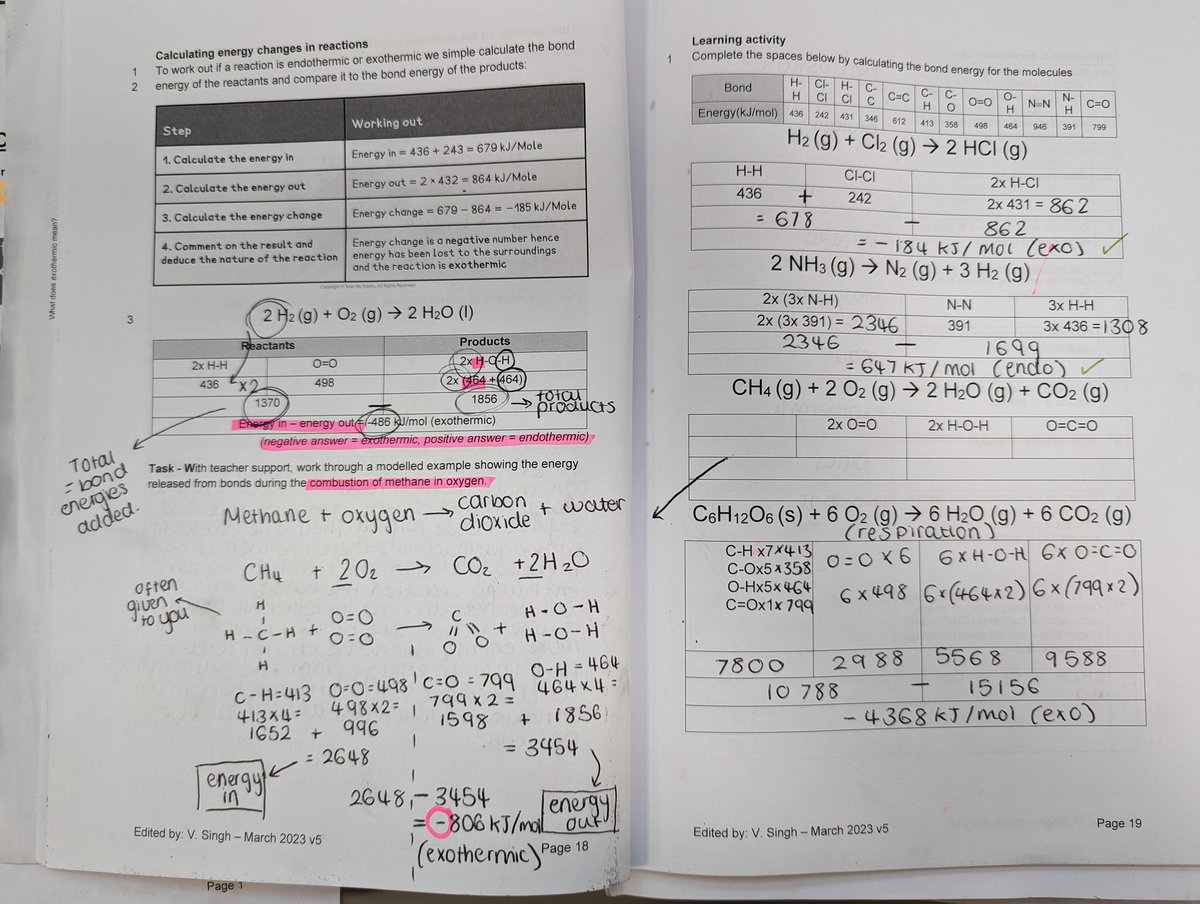 Calculating energy changes in reactions
1 To work out if a reaction is endothermic or exothermic we simple calculate the bond
2 energy of the reactants and compare it to the bond energy of the products:
Step Working out
1. Calculate the energy in Energy in = 436 + 243 = 679 kJ/Mole
2. Calculate the energy out Energy out = 2 × 432 = 864 kJ/Mole
3. Calculate the energy change Energy change = 679 – 864 = –185 kJ/Mole
4. Comment on the result and deduce the nature of the reaction
Energy change is a negative number hence
energy has been lost to the surroundings
and the reaction is exothermic
Copyright © Save My Exams. All Rights Reserved
What does exothermic mean?
3 2 H₂ (g) + O₂ (g) → 2 H₂O (l)
Reactants Products
2x H-H O=O 2x H-O-H
436 x2 498 2x (464 + 464)
1370 – 1856 → total products
Energy in – energy out = -486 kJ/mol (exothermic)
(negative answer = exothermic, positive answer = endothermic)
Total
= bond
energies
added.
Task - With teacher support, work through a modelled example showing the energy
released from bonds during the combustion of methane in oxygen.
Methane + oxygen → carbon dioxide + water
CH4 + 2O2 → CO2 + 2H2O
often
given
to you
H
H - C - H + O=O → C + H-O-H
O=O O O H-O-H
H
C-H=413 O=O=498 C=O=799 O-H=464
413x4= 498x2= 799x2= 464x4=
1652 + 996 1598 + 1856
= 2648 = 3454
energy in
2648 - 3454
energy out
= -806 kJ/mol
(exothermic)
Edited by: V. Singh – March 2023 v5
Page 18
Page 1
Learning activity
1 Complete the spaces below by calculating the bond energy for the molecules
Bond H-H Cl-Cl H-Cl C-C C=C C-H C-O O=O O-H N=N N-H C=O
Energy(kJ/mol) 436 242 431 346 612 413 358 498 464 946 391 799
H₂ (g) + Cl₂ (g) → 2 HCl (g)
H-H Cl-Cl 2x H-Cl
436 + 242 2x 431 = 862
= 678 – 862
= -184 kJ/mol (exo) ✓
2 NH₃ (g) → N₂ (g) + 3 H₂ (g)
2x (3x N-H) N-N 3x H-H
2x (3x 391) = 2346 391 3x 436 = 1308
2346 – 1699
= 647 kJ/mol (endo) ✓
CH₄ (g) + 2 O₂ (g) → 2 H₂O (g) + CO₂ (g)
2x O=O 2x H-O-H O=C=O
C₆H₁₂O₆ (s) + 6 O₂ (g) → 6 H₂O (g) + 6 CO₂ (g)
(respiration)
C-H x7x413 O=O x6 6xH-O-H 6xO=C=O
C-Ox5x358
O-Hx5x464 6x498 6x(464x2) 6x(799x2)
C=Ox1x799
7800 2988 5568 9588
10 788 – 15156
-4368 kJ/mol (exo)
Edited by: V. Singh – March 2023 v5
Page 19